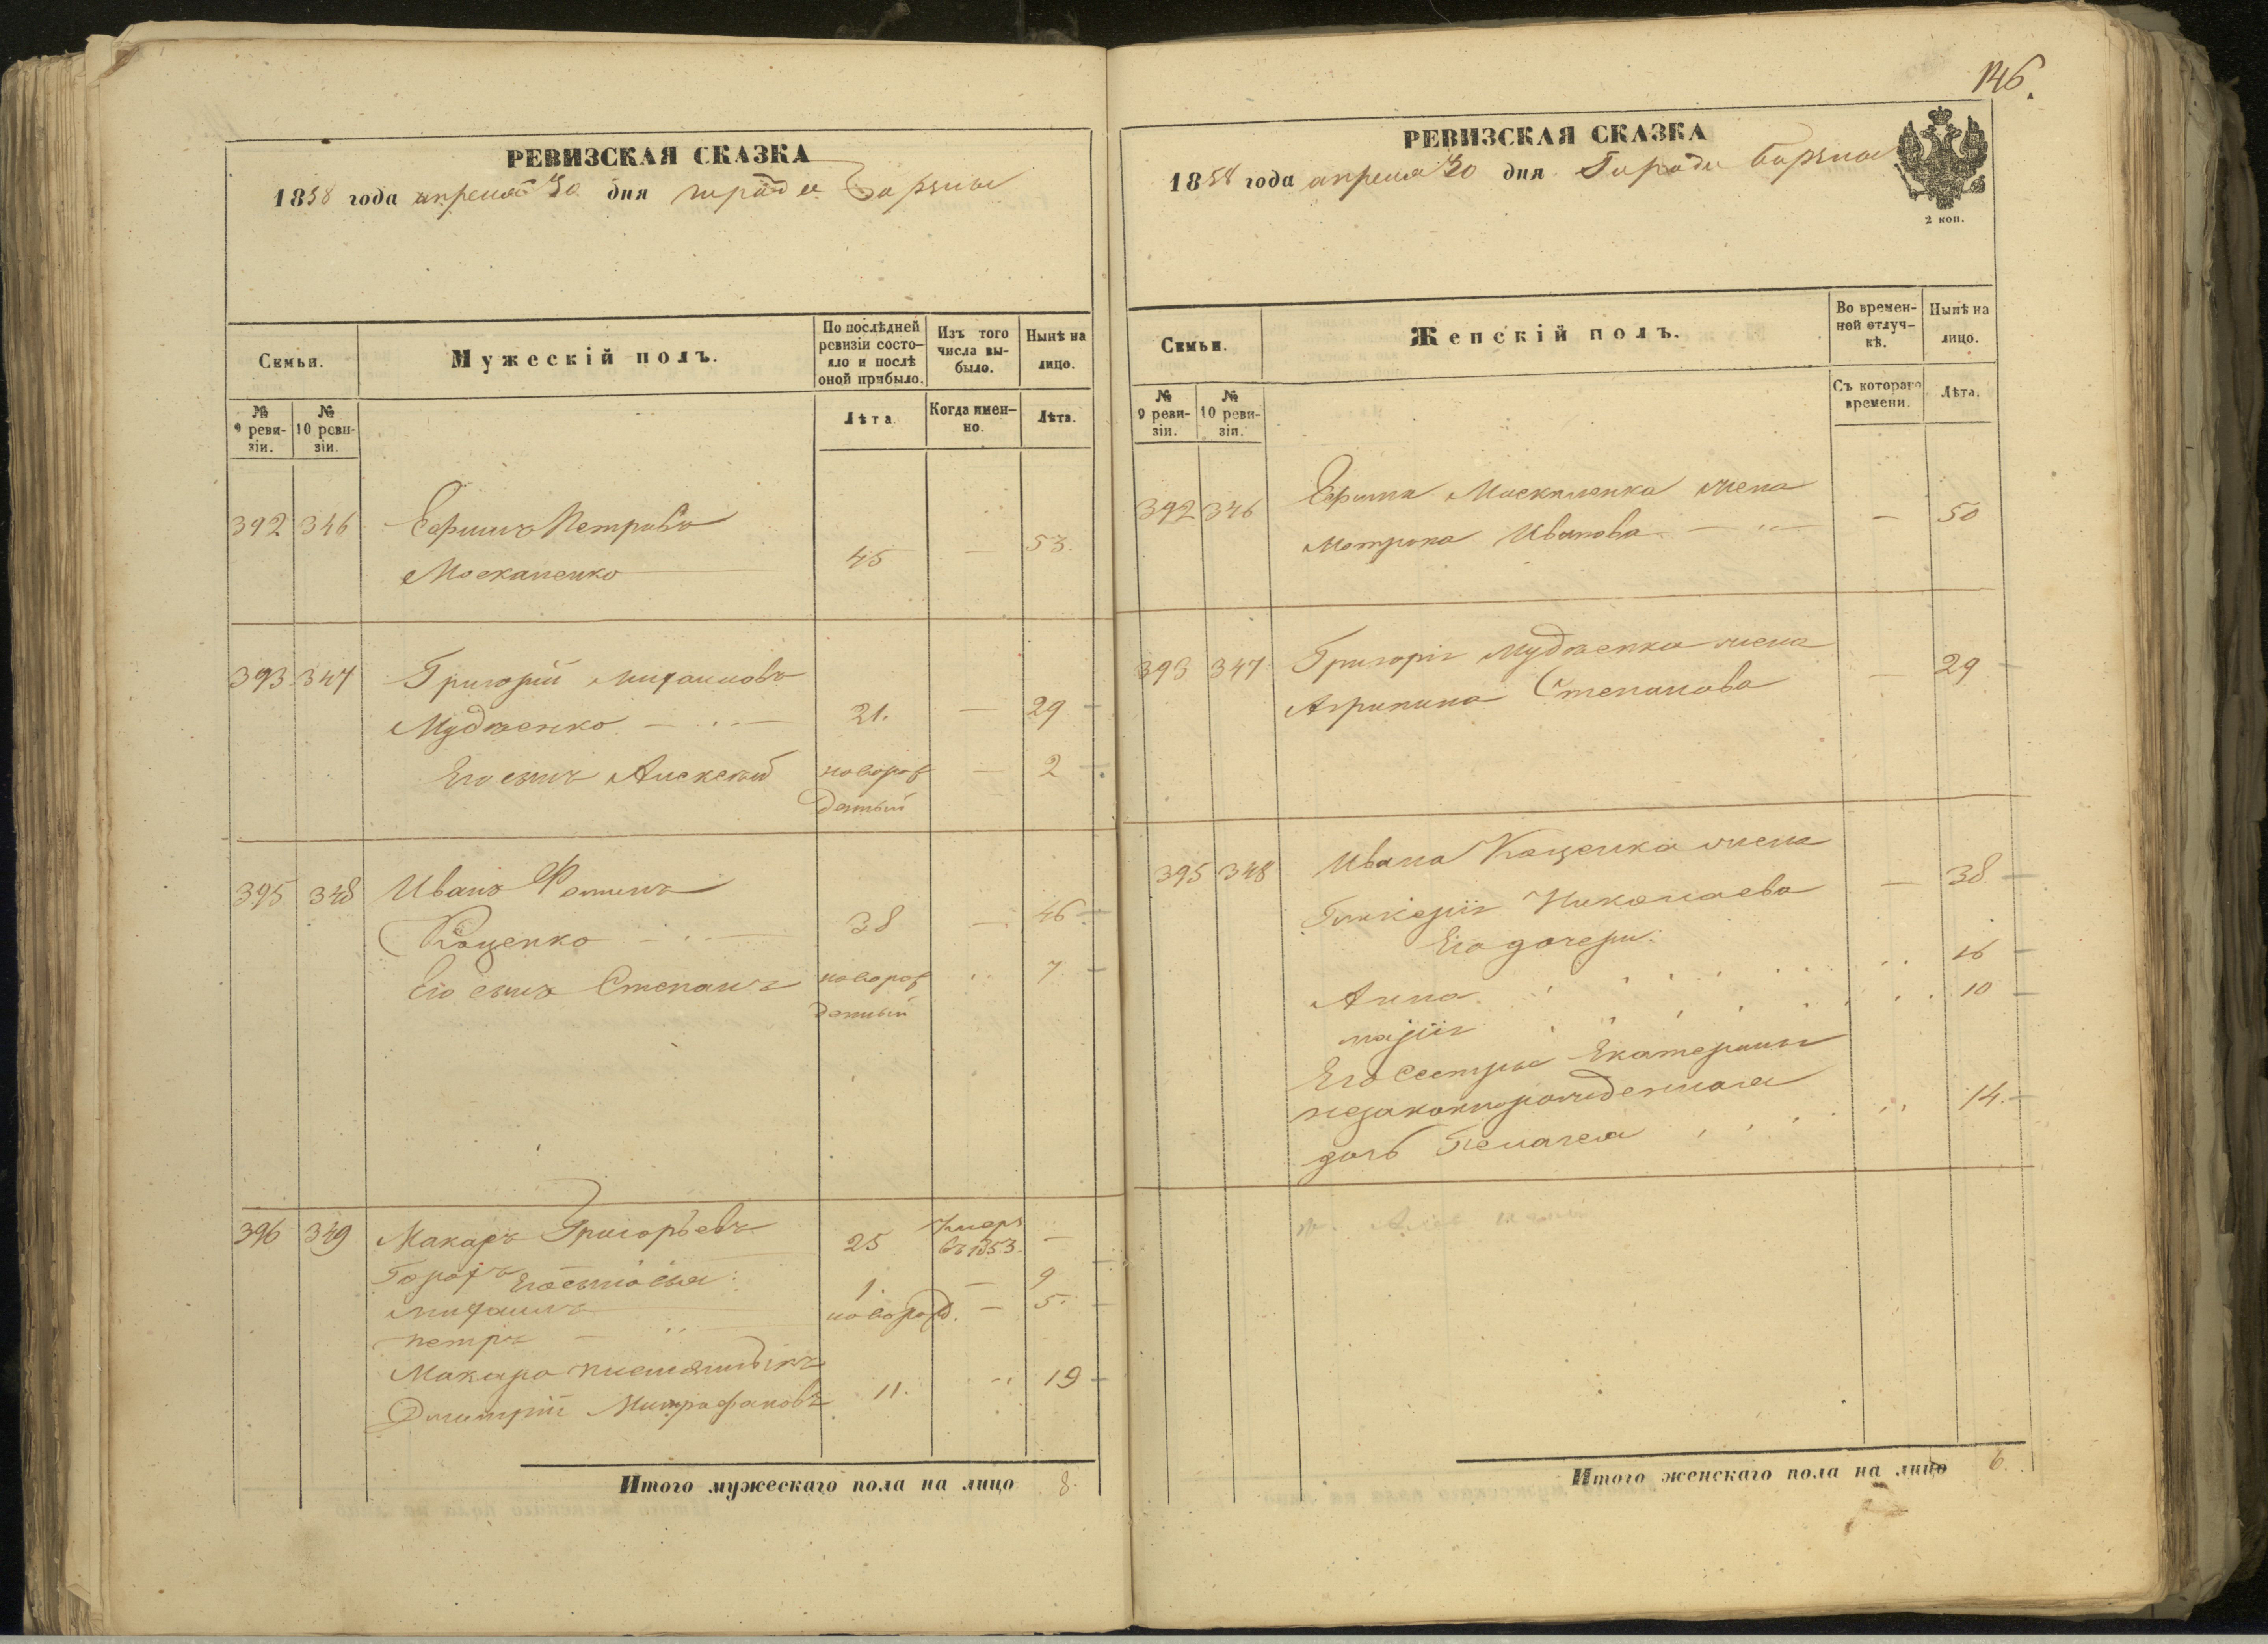 РЕВИЗСКАЯ СКАЗКА
1858 года апреля 30 дня города Борзны
Семьи.
Мужескій полъ.
По послѣдней ревизіи состо-
яло и послѣ
оной прибыло.
Изъ того
числа вы-
было.
Нынѣ на
лицо.
№
9 реви-
зіи.
№
10 реви-
зіи.
Лѣта
Когда имен-
но.
Лѣта.
392 346 Ефимъ Петровъ
Москаленко 45 — 53.
393 347 Григорій Михаиловъ
Мудженко 21. — 29
Его сынъ Алексѣй новорож — 2
денный
395 348 Иванъ Фоминъ
Коценко 38 — 46
Его сынъ Степанъ новорож 7
денный
396 349 Макаръ Григорьевъ 25 умеръ
въ 1853. —
Горохъ Его сыновья:
Михаилъ 1 — 9
Петръ новорожд. — 5.
Макара племянникъ
Дмитрій Митрофановъ 11. 19
Итого мужескаго пола на лицо 8.
146.
РЕВИЗСКАЯ СКАЗКА
1858 года апреля 30 дня Города Борзны
2 коп.
Семьи.
Женскій полъ.
Во времен-
ной отлуч-
кѣ.
Нынѣ на
лицо.
№
9 реви-
зіи.
№
10 реви-
зіи.
Съ котораго
времени.
Лѣта.
392 346 Ефима Москаленка жена
Мотрона Иванова — 50
393 347 Григорія Мудженка жена
Агрипина Степанова — 29
395 348 Ивана Коценка жена
Гликерія Николаева — 38
Его дочери:
Анна 16
Марія 10
Его сестры Екатерины
незаконнорожденная
дочь Пелагея 14.
Итого женскаго пола на лицо 6.